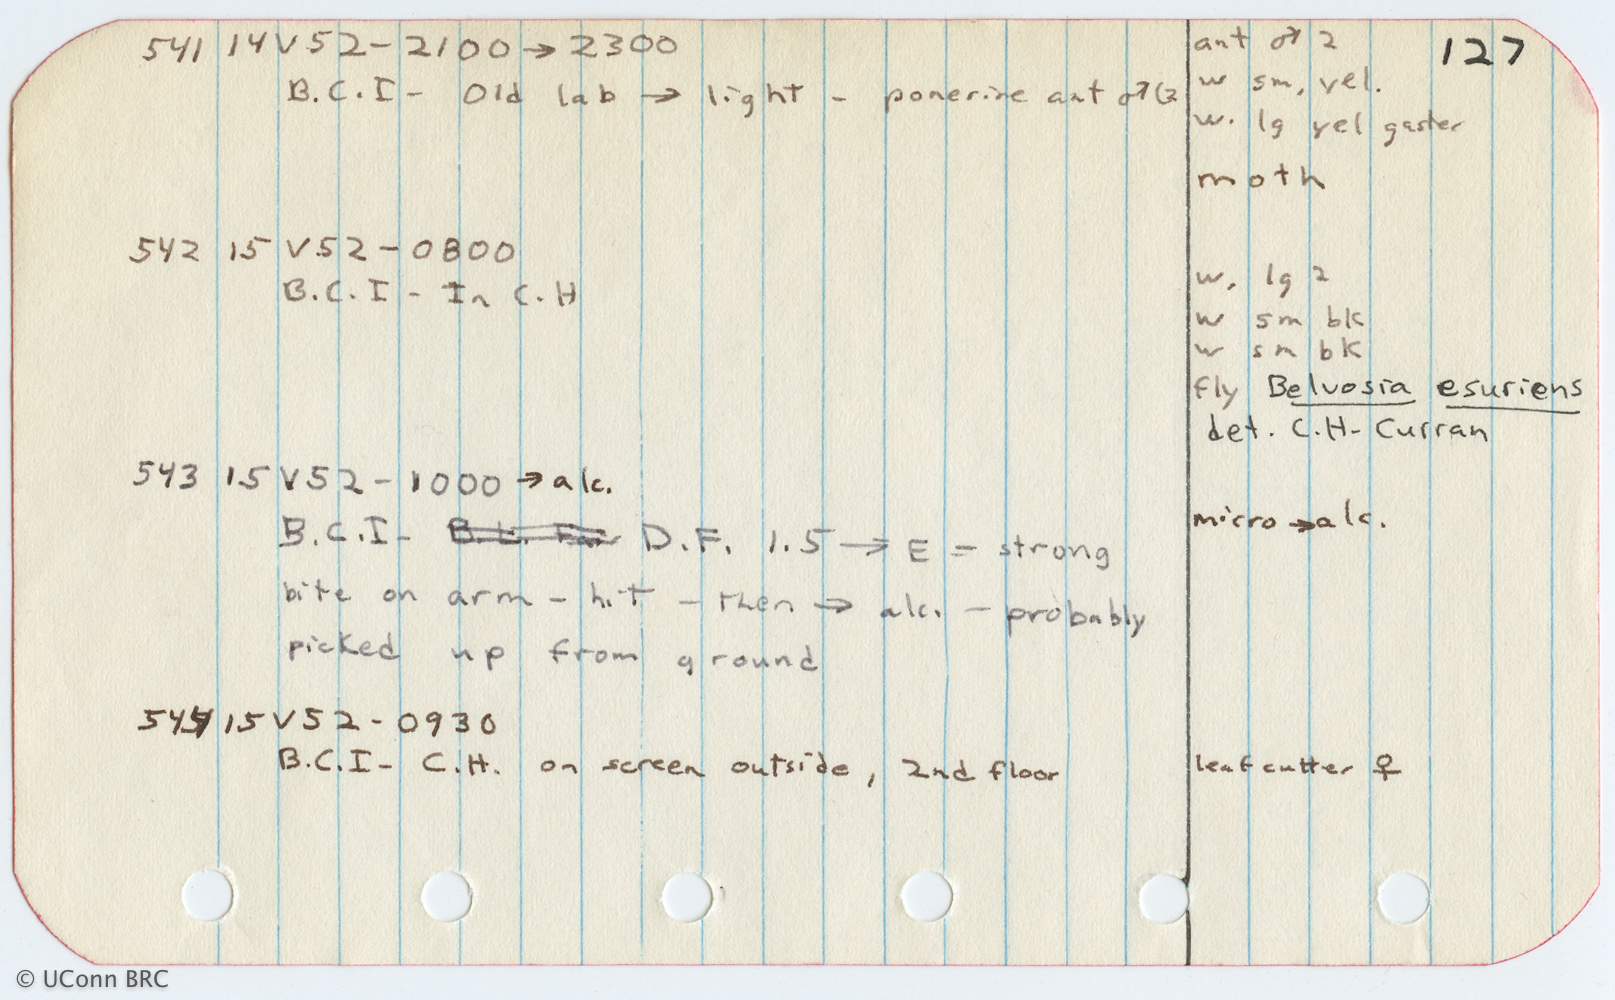 127
541 14 V 52 - 2100 → 2300
ant ♂ 2
B.C.I - Old lab → light - ponerine ant ♂ (2
w sm, yel.
w. lg yel gaster
moth
542 15 V 52 - 0800
B.C.I - In C.H
w. lg 2
w sm bk
w sm bk
fly Belvosia esuriens
det. C.H. Curran
543 15 V 52 - 1000 → alc.
micro → alc.
B.C.I - D.F. 1.5 → E = strong
bite on arm - hit - then → alc. - probably
picked up from ground
544 15 V 52 - 0930
B.C.I - C.H. on screen outside, 2nd floor
leafcutter ♀
© UConn BRC